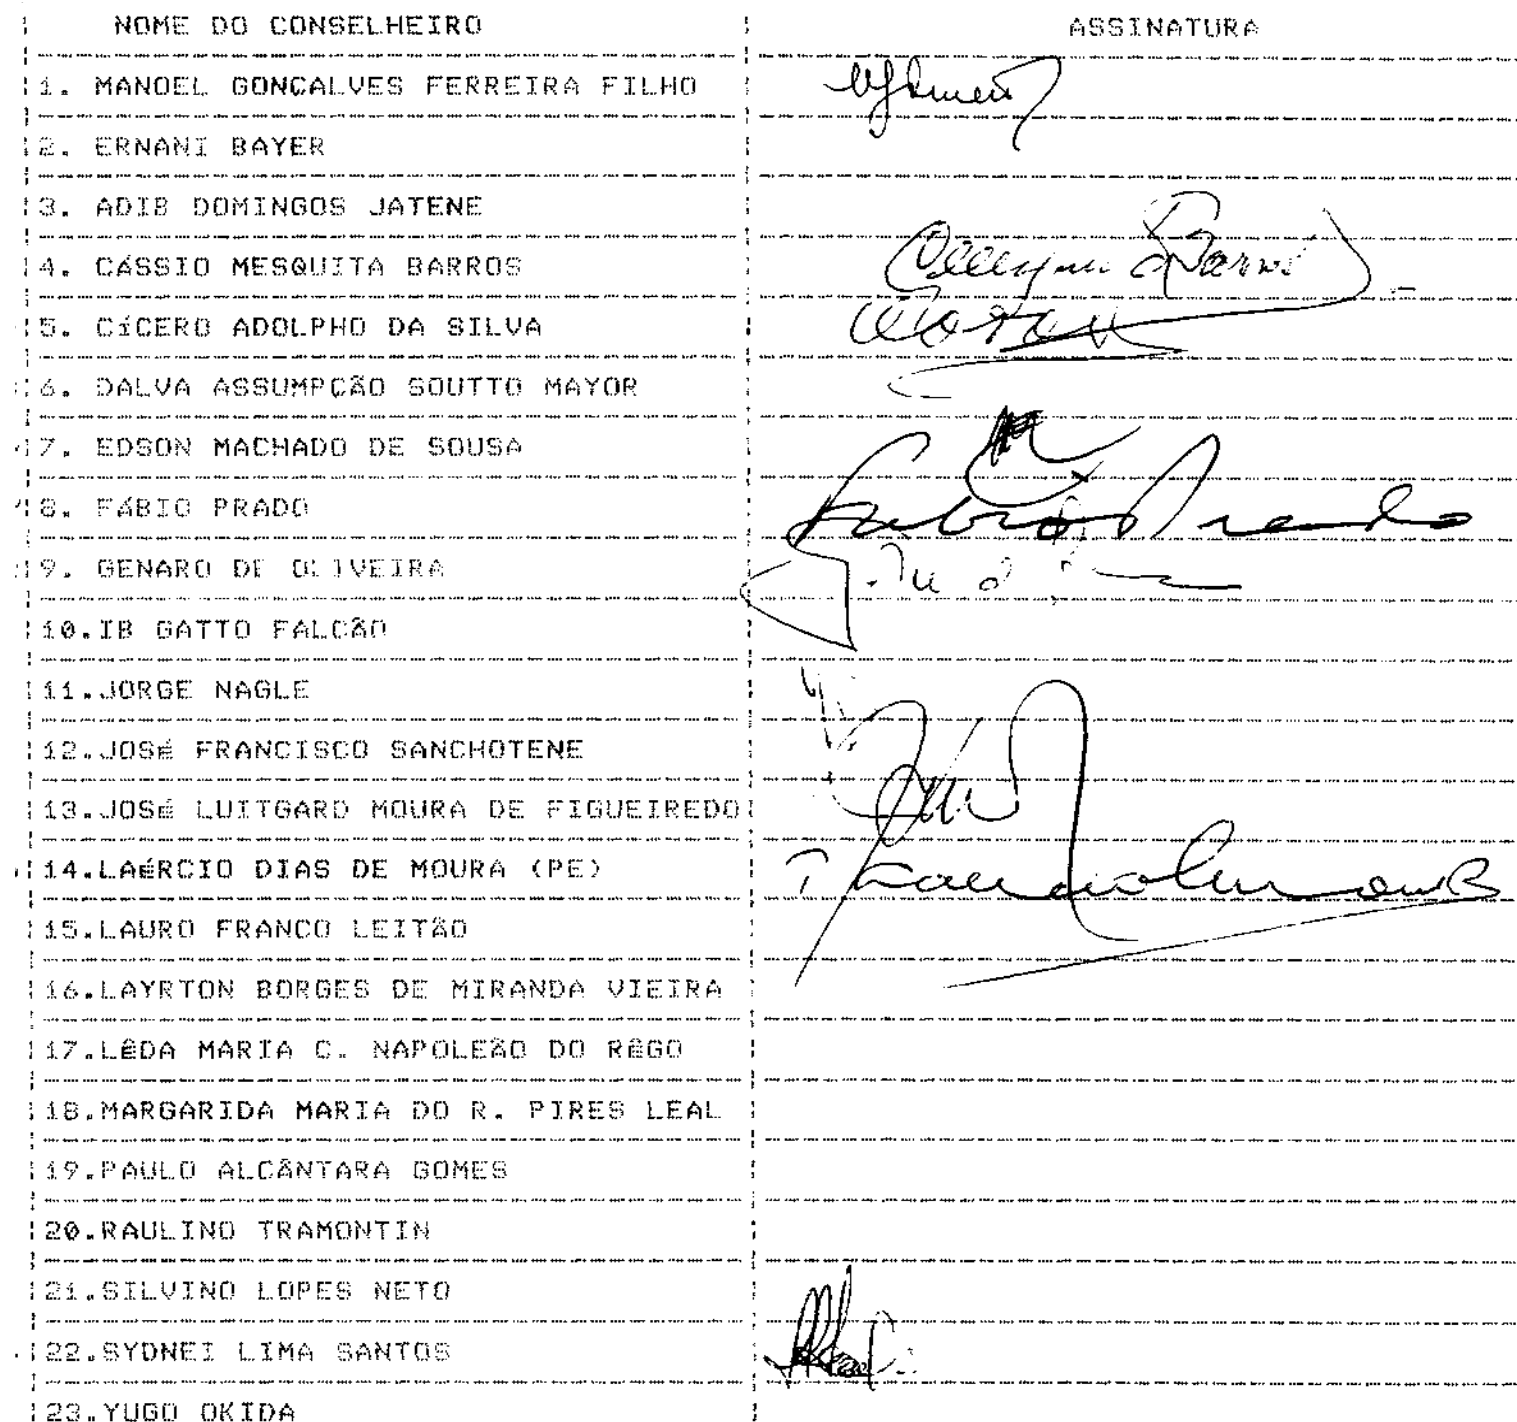 NOME DO CONSELHEIRO ASSINATURA
1. MANOEL GONÇALVES FERREIRA FILHO
2. ERNANI BAYER
3. ADIB DOMINGOS JATENE
4. CÁSSIO MESQUITA BARROS
5. CíCERO ADOLPHO DA SILVA
6. DALVA ASSUMPÇÃO SOUTTO MAYOR
7. EDSON MACHADO DE SOUSA
8. FÁBIO PRADO Fabio Prado
9. GENARO DE OLIVEIRA
10.IB GATTO FALCÃO
11.JORGE NAGLE
12.JOSé FRANCISCO SANCHOTENE
13.JOSé LUITGARD MOURA DE FIGUEIREDO
14.LAéRCIO DIAS DE MOURA (PE)
15.LAURO FRANCO LEITÃO
16.LAYRTON BORGES DE MIRANDA VIEIRA
17.LÊDA MARIA C. NAPOLEÃO DO RÊGO
18.MARGARIDA MARIA DO R. PIRES LEAL
19.PAULO ALCÂNTARA GOMES
20.RAULINO TRAMONTIN
21.SILVINO LOPES NETO
22.SYDNEI LIMA SANTOS
23.YUGO OKIDA